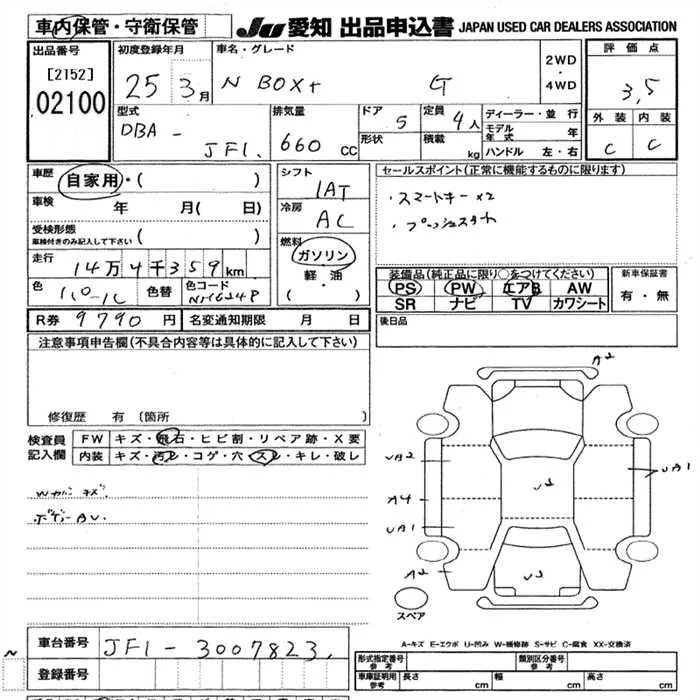 車内保管・守衛保管 JU 愛知 出品申込書 JAPAN USED CAR DEALERS ASSOCIATION
出品番号 初度登録年月 車名・グレード 2WD ・ 4WD 評価点
[2152] 25 3月 N BOX+ G 3,5
02100
型式 排気量 ドア 定員 ディーラー・並行 外装 内装
DBA - JF1. 660 CC 5 4人 モデル年式 年 C C
形状 積載 kg ハンドル 左・右
車歴 自家用・( ) シフト セールスポイント(正常に機能するものに限ります)
車検 年 月( 日) 1AT ・スマートキー×2
受検形態 冷房 ・プッシュスタート
車検付きのみ記入して下さい ( ) AC
走行 14万4千359km 燃料 ガソリン・軽・油 ( )
装備品(純正品に限り○をつけてください) 新車保証書
色 色替 色コード PS PW エアB AW 有・無
SR ナビ TV カワシート
R券 9790円 名変通知期限 月 日 後日品
注意事項申告欄(不具合内容等は具体的に記入して下さい)
修復歴 有 〔箇所
検査員記入欄 FW キズ・飛石・ヒビ割・リペア跡・X要
内装 キズ・汚レ・コゲ・穴・スレ・キレ・破レ
Wカバキズ.
ボデーAU.
A2
UA2 UA1
A4
UA1
A2
スペア
A-キズ E-エクボ U-凹み W-補修跡 S-サビ C-腐食 XX-交換済
車台番号 JF1-3007823.
登録番号
型式指定番号 参考 類別区分番号 参考
車庫証明用 参考 長さ cm 幅 cm 高さ cm